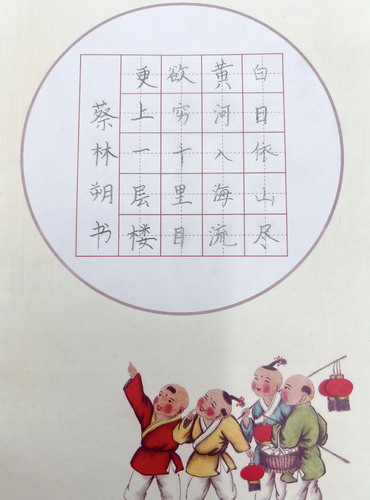 白日依山尽
黄河入海流
欲穷千里目
更上一层楼
蔡林朔书